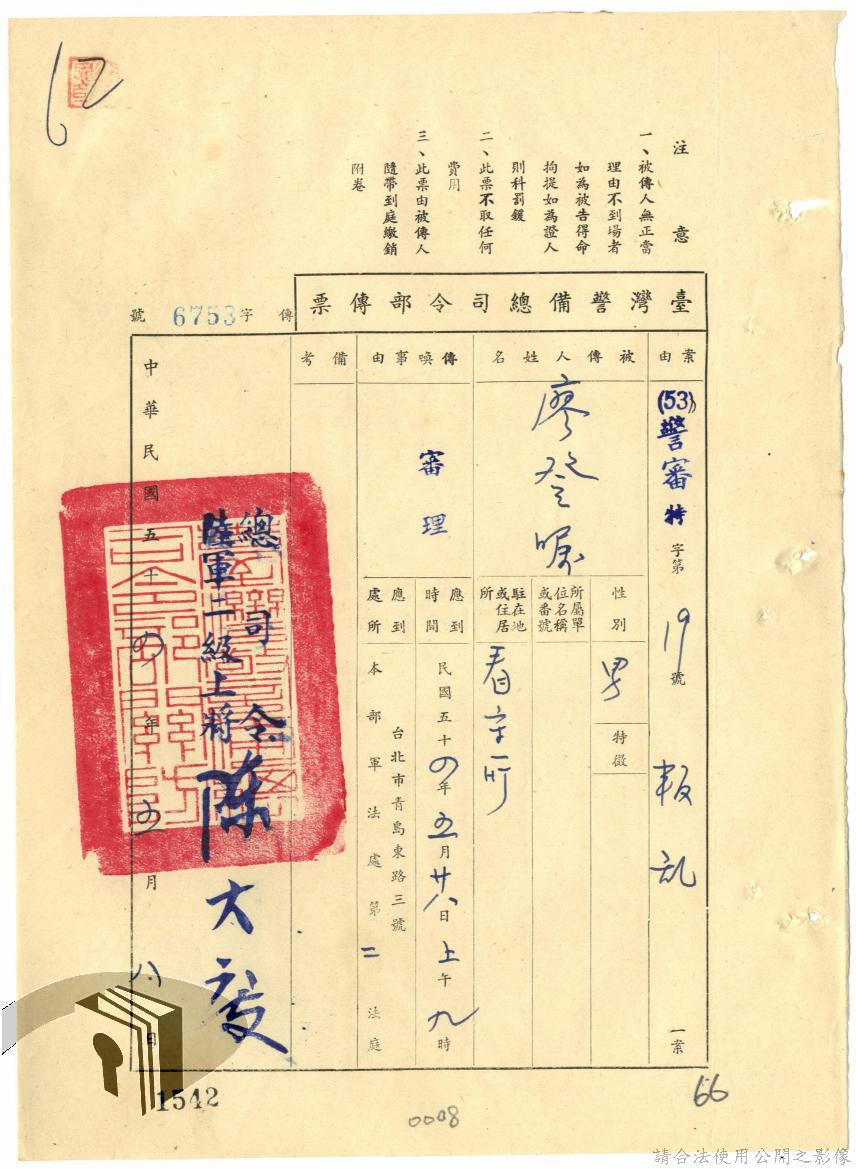 62
注意
一、被傳人無正當
理由不到場者
如為被告得命
拘提如為證人
則科罰鍰
二、此票不取任何
費用
三、此票由被傳人
隨帶到庭繳銷
附卷
臺灣警備總司令部傳票
傳字6753號
案由
(53)警審特字第19號 叛乱 一案
被傳人姓名
廖登
性別
男
特徵
所屬單
位名稱
或番號
駐在地
或住居
所
看守所
傳喚事由
審理
應到
時間
民國五十四年五月廿八日上午九時
應到
處所
台北市青島東路三號
本部軍法處第二法庭
備考
總司令
陸軍二級上將
陳大慶
中華民國五十四年五月八日
1542
0008
66
請合法使用公開之影像